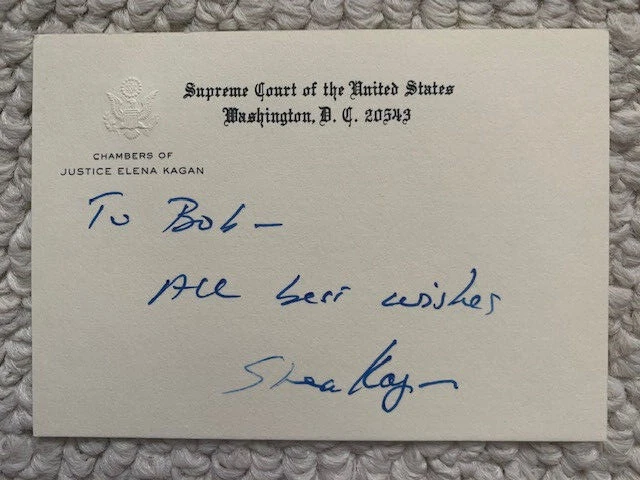 Supreme Court of the United States
Washington, D. C. 20543
CHAMBERS OF
JUSTICE ELENA KAGAN
To Bob—
All best wishes
Elena Kagan